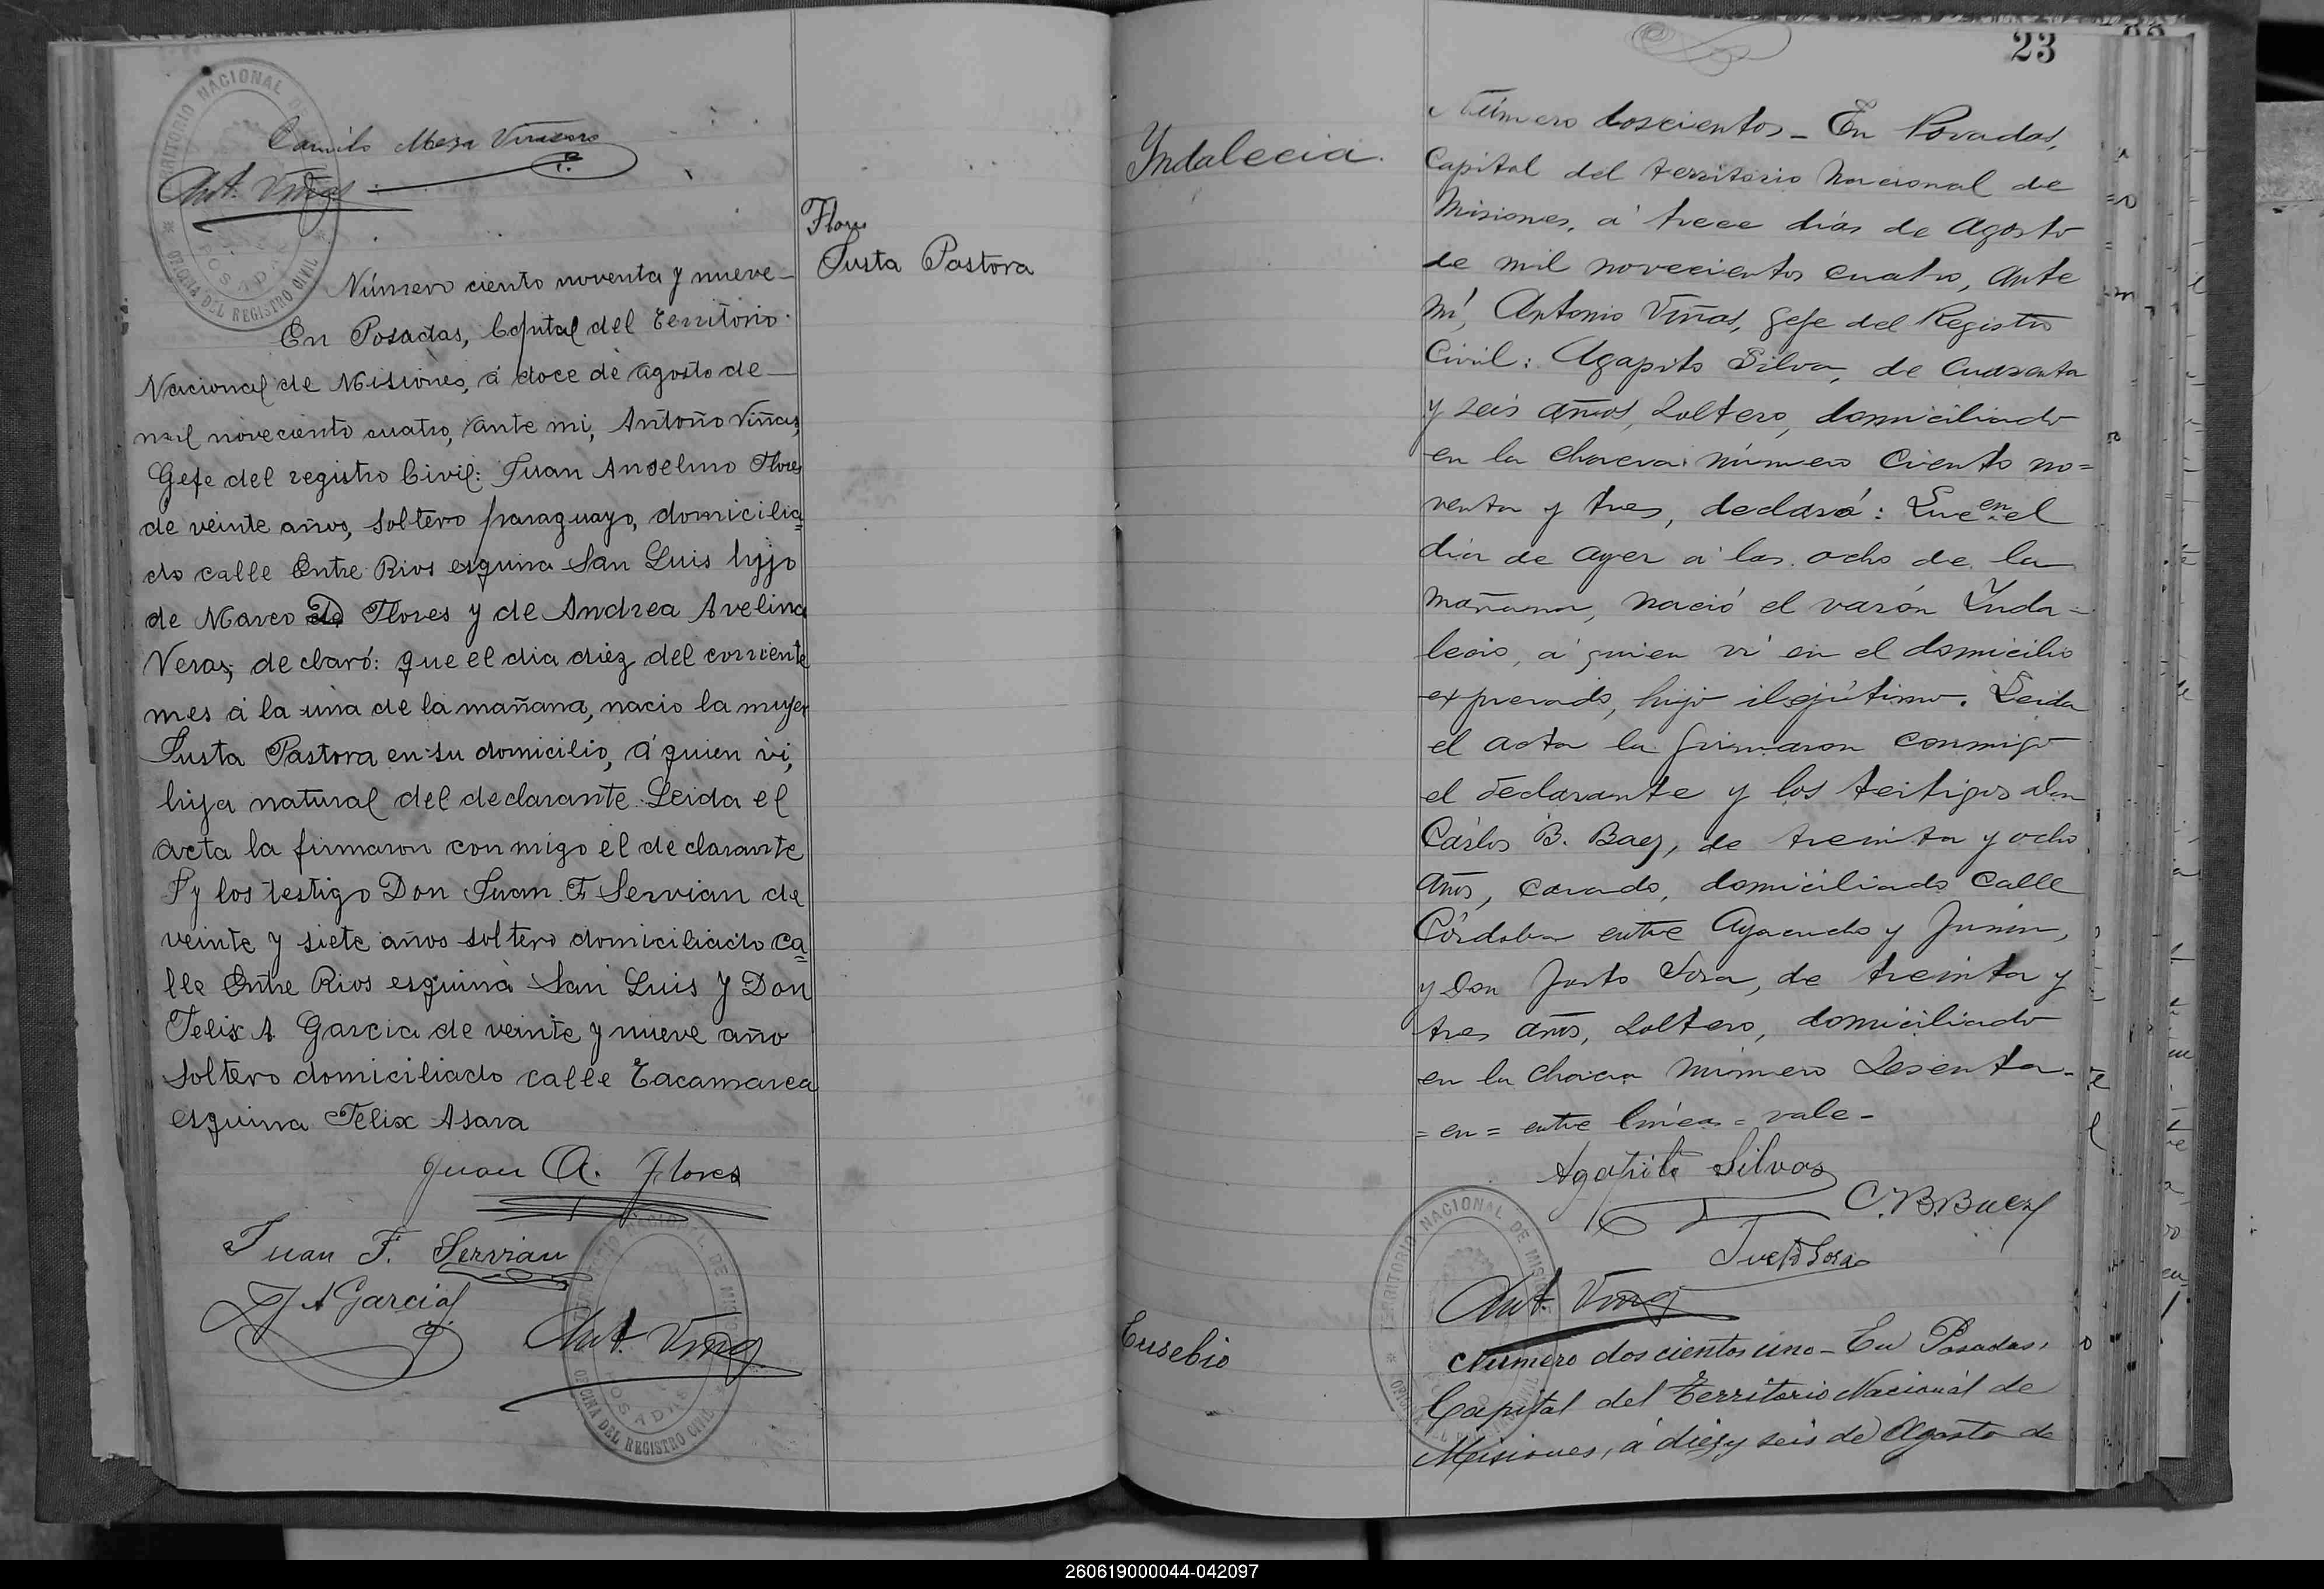 Camilo Meza Virasoro
Ant. Viñas
Flores
Justa Pastora
Número ciento noventa y nueve
En Posadas, Capital del Territorio
Nacional de Misiones, á doce de agosto de
mil noveciento cuatro, ante mi, Antoño Viñas,
Gefe del registro Civil: Juan Anselmo Flores
de veinte años, soltero paraguayo, domicilia=
do calle Entre Rios esquina San Luis hyjo
de Marco Flores y de Andrea Avelina
Veras, declaró: que el dia diez del corriente
mes á la una de la mañana, nacio la mujer
Justa Pastora en su domicilio, á quien vi,
hija natural del declarante. Leida el
acta la firmaron con migo el declarante
y los testigo Don Juan F. Servian de
veinte y siete años soltero domiciliado ca=
lle Entre Rios esquina San Luis y Don
Felix A. Garcia de veinte y nueve año
soltero domiciliado calle Cacamarca
esquina Felix Asara
Juan A. Flores
Juan F. Servian
F A Garcia
Ant. Viñas
TERRITORIO NACIONAL DE MISIONES
POSADAS
OFICINA DEL REGISTRO CIVIL
23
Yndalecia.
Número doscientos _ En Posadas,
Capital del territorio Nacional de
Misiones, á trece dias de Agosto
de mil novecientos cuatro, ante
mí, Antonio Viñas, Gefe del Registro
Civil: Agapito Silva, de cuarenta
y seis años, soltero, domiciliado
en la chacra número ciento no=
venta y tres, declaró: Que en el
dia de ayer á las ocho de la
mañana, nació el varón Ynda=
lecio, á quien ví en el domicilio
expresado, hijo ilegítimo. Leida
el acta la firmaron conmigo
el declarante y los testigos don
Cárlos B. Baez, de treinta y ocho
años, casado, domiciliado calle
Córdoba entre Ayacucho y Junin,
y Don Justo Sosa, de treinta y
tres años, soltero, domiciliado
en la chacra número sesenta -
= en = entre líneas = vale -
Agapito Silvas
C. B. Baez
Justo Sosa
Ant. Viñas
Eusebio
Número doscientos uno - En Posadas,
Capital del Territorio Nacional de
Misiones, á diez y seis de Agosto de
260619000044-042097